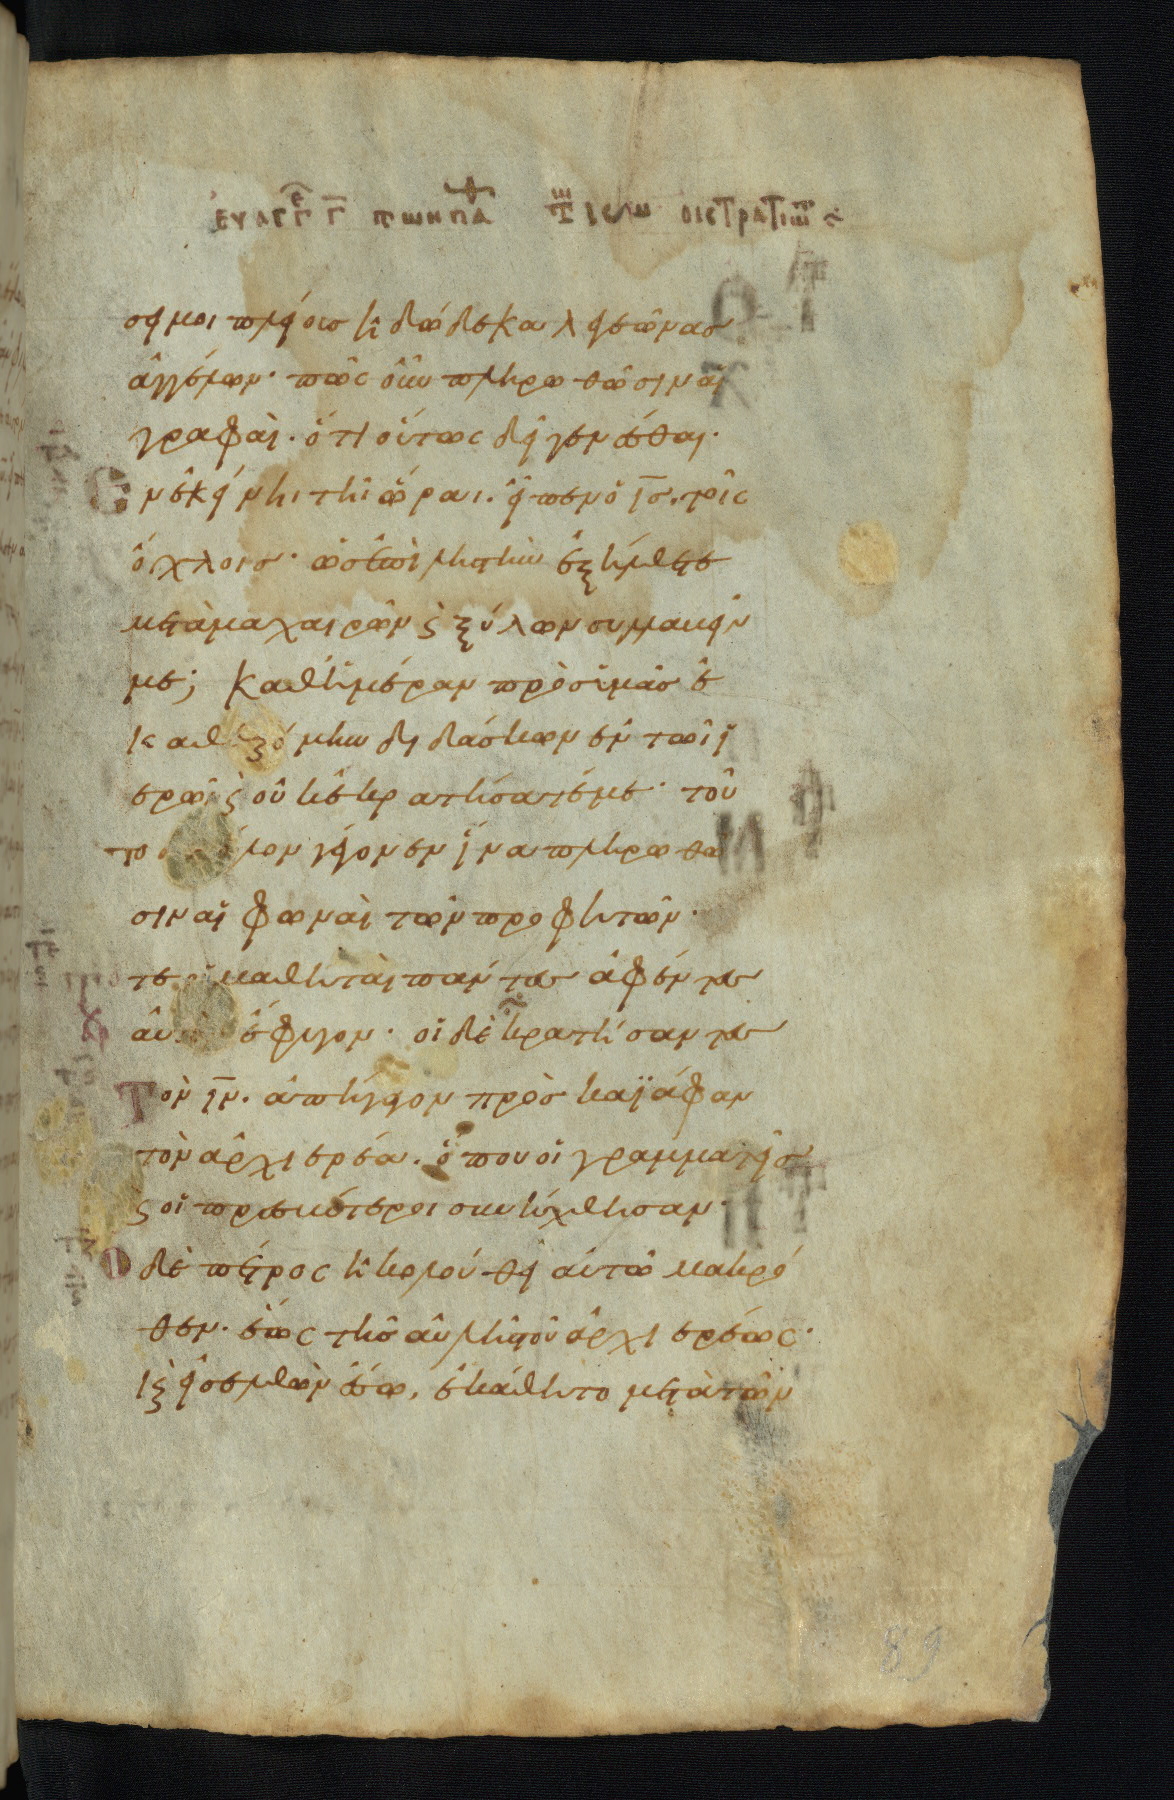 ευαγγε γ των παθ τω ιω οι στρατιωτ
σει μοι πλείους ἢ δώδεκα λεγεῶνας
ἀγγέλων· πῶς οὖν πληρωθῶσιν αἱ
γραφαί· ὅτι οὕτως δεῖ γενέσθαι·
Ἐν ἐκείνηι τῆι ὥραι· εἶπεν ὁ ις· τοῖς
ὄχλοις· ὡς ἐπὶ ληστὴν ἐξήλθετε
μετὰ μαχαιρῶν ϗ ξύλων συλλαβεῖν
με; καθημέραν πρὸς ὑμᾶς ἐ
καθεζόμην διδάσκων ἐν τῶι ἱ
ερῶι ϗ οὐκ ἐκρατήσατέ με· τοῦ
το λον γέγονεν ἵνα πληρωθῶ
σιν αἱ φωναὶ τῶν προφητῶν·
τε οἱ μαθηταὶ πάντες ἀφέντες
αὐ ἔφυγον· οἱ δὲ κρατήσαντες
Τὸν ιν· ἀπήγαγον πρὸς καϊάφαν
τὸν ἀρχιερέα· ὅπου οἱ γραμματεῖς
ϗ οἱ πρεσβύτεροι συνήχθησαν·
Ὁ δὲ πέτρος ἠκολούθει αὐτῶ μακρό
θεν· ἕως τῆς αὐλῆς τοῦ ἀρχιερέως·
κ εἰσελθὼν ἔσω, ἐκάθητο μετὰ τῶν
89